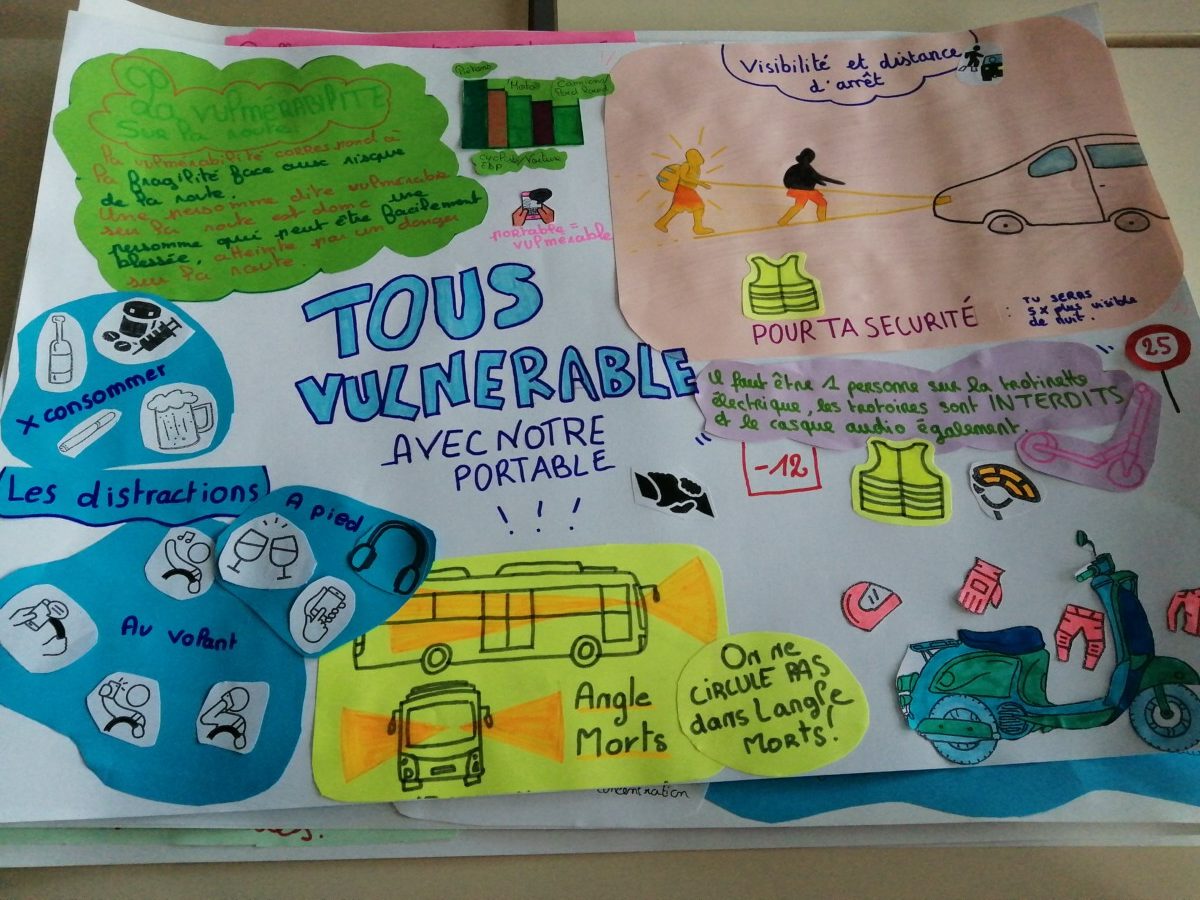 La VULMÉRABILITÉ
Sur la route!
La vulmérabilité correspond à
la fragilité face aux risque
de la route.
Une personne dite vulmérable
sur la route est donc une
personne qui peut être facilement
blessée, atteinte par un danger
sur la route.
Piétons
Motos
Camions/
Poid lourd
Cyclist/
EDP
Voiture
portable =
vulmérable
Visibilité et distance
d'arrêt
POUR TA SECURITÉ
: TU SERAS
5 x plus visible
de nuit.
TOUS
VULNERABLE
AVEC NOTRE
PORTABLE
! ! !
25
Il faut être 1 personne sur la trotinette
électrique, les trotoires sont INTERDITS
et le casque audio également.
-12
x consommer
Les distractions
A pied
Au volant
Angle
Morts
On ne
CIRCULE PAS
dans L'angle
MORTS!
concentration